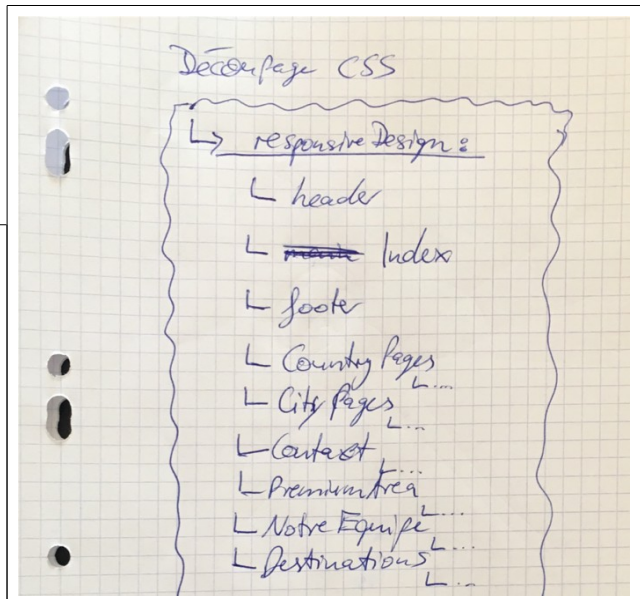 Découpage CSS
↳ responsive Design :
└ header
└ Index
└ footer
└ Country Pages
└ ...
└ City Pages
└ ...
└ Contact
└ ...
└ Premium Area
└ ...
└ Notre Equipe
└ ...
└ Destinations
└ ...